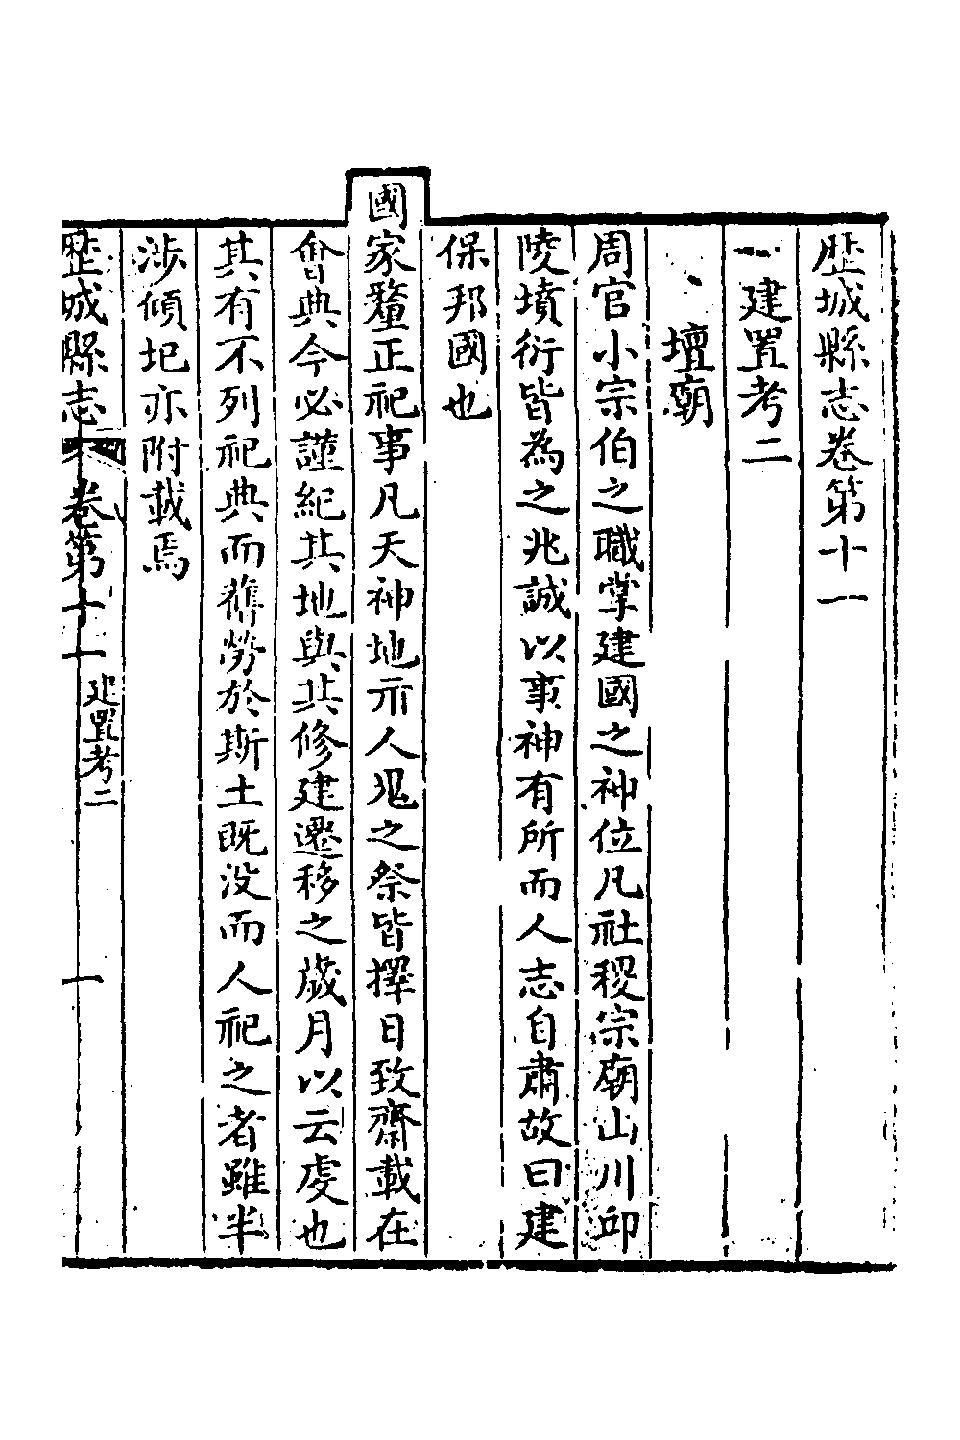 歴城縣志卷第十一
建置考二
壇廟
周官小宗伯之職掌建國之神位凡社稷宗廟山川邱
陵墳衍皆為之兆誠以事神有所而人志自肅故曰建
保邦國也
國家釐正祀事凡天神地示人鬼之祭皆擇日致齋載在
會典今必謹紀其地與其修建遷移之歲月以云虔也
其有不列祀典而舊勞於斯土既没而人祀之者雖半
涉傾圮亦附載焉
歴城縣志 卷第十一 建置考二 一